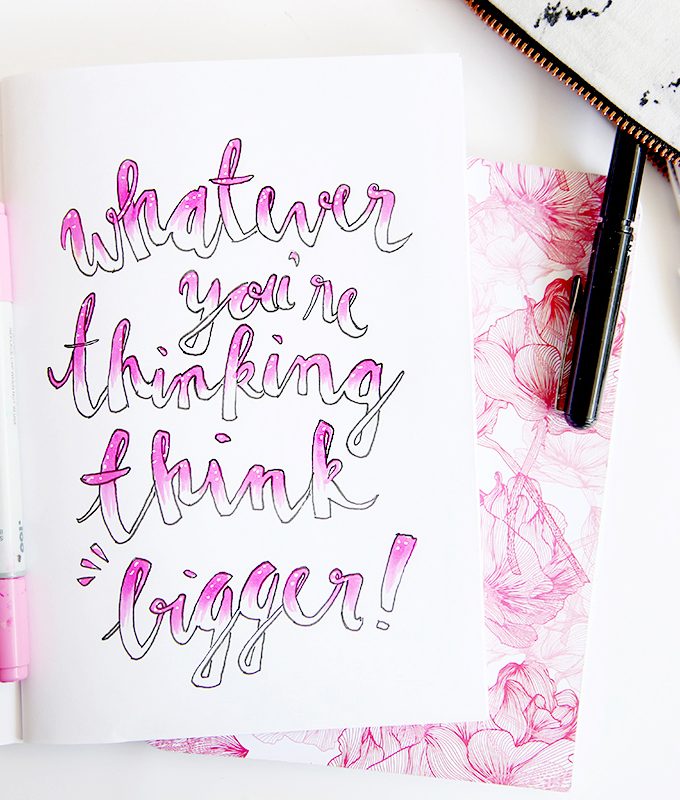 whatever
you're
thinking
think
bigger!